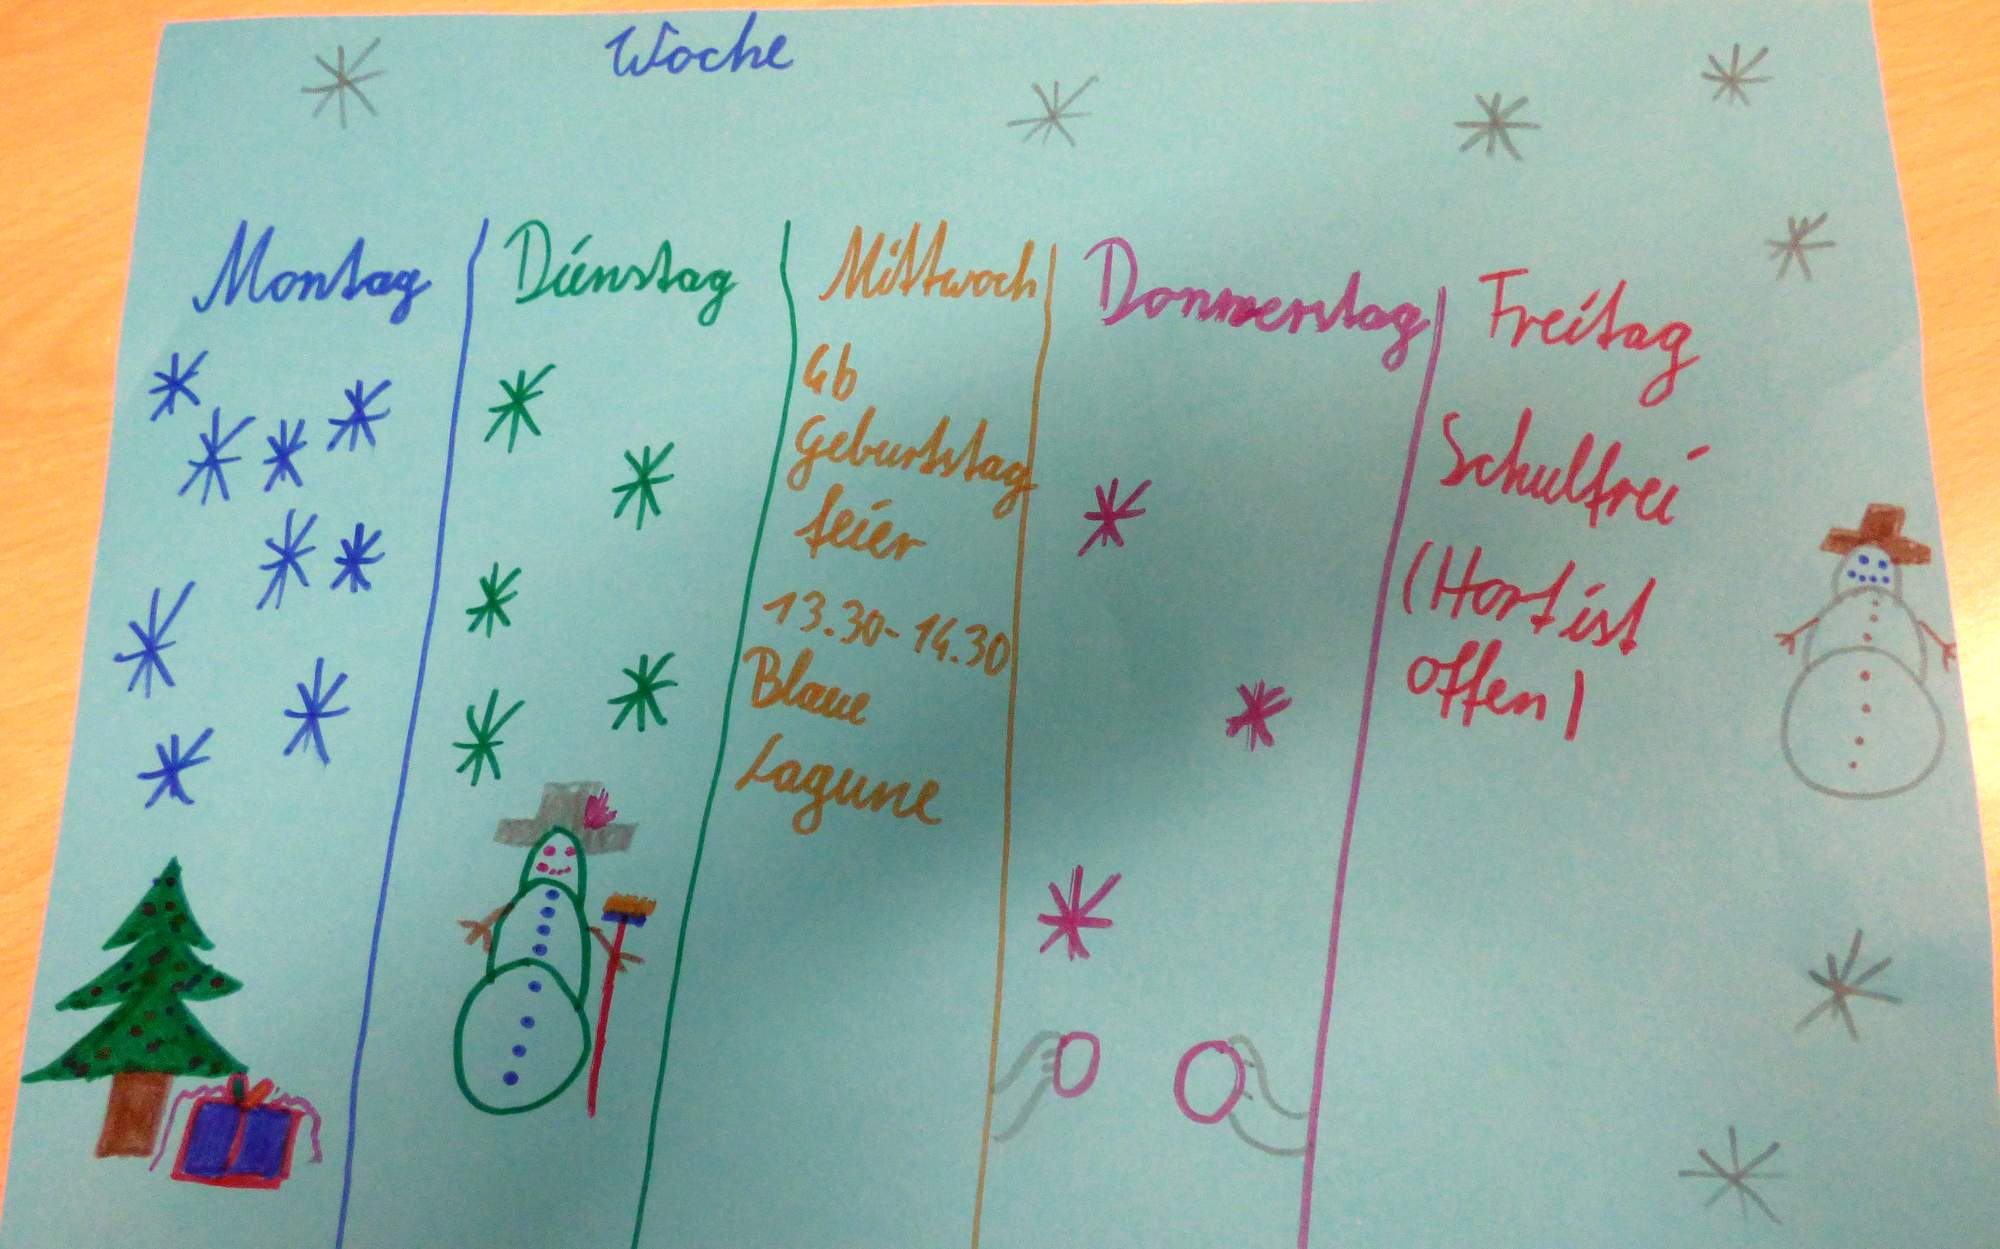 Woche
Montag
Dienstag
Mittwoch
4b
Geburtstag
feier
13.30-14.30
Blaue
Lagune
Donnerstag
Freitag
Schulfrei
(Hort ist
offen)